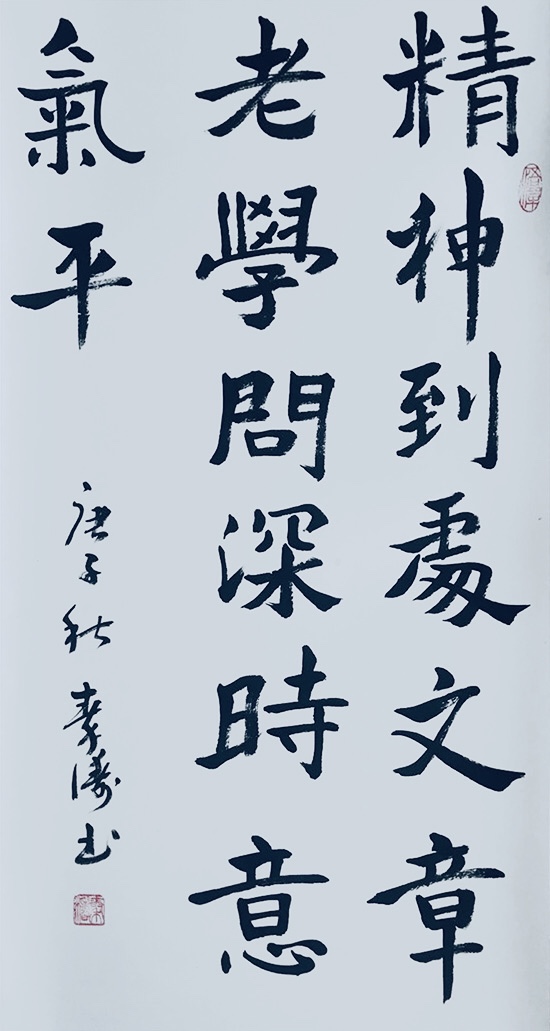 精神到處文章
老學問深時意
氣平
庚子秋 李濤书